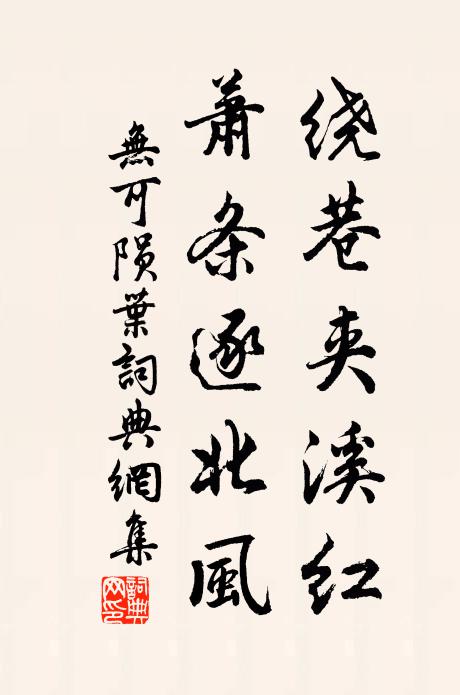 绕巷夹溪红
萧条逐北風
無可陨葉詞典網集
詞典網印